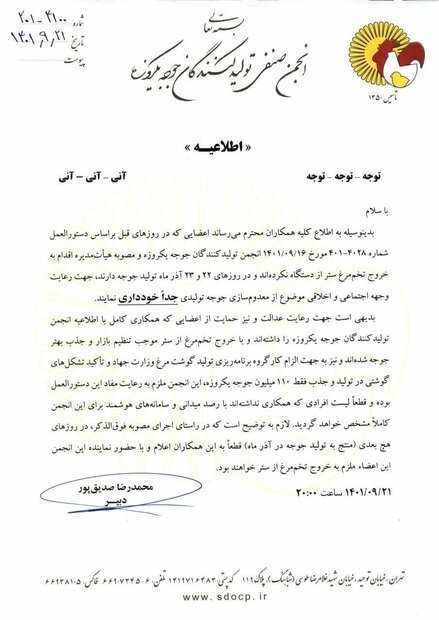 بسمه تعالی
انجمن صنفی تولیدکنندگان جوجه یکروزه
شماره ۲۰۱-۴۱۰۰
تاریخ ۱۴۰۱,۹,۲۱
پیوست
تاسیس ۱۳۵۰
« اطلاعیـــه »
توجه – توجه – توجه
آنی – آنی – آنی
با سلام
بدینوسیله به اطلاع کلیه همکاران محترم می‌رساند اعضایی که در روزهای قبل براساس دستورالعمل
شماره ۴۰۱-۴۰۲۸ مورخ ۱۴۰۱/۰۹/۱۶ انجمن تولیدکنندگان جوجه یکروزه و مصوبه هیأت‌مدیره اقدام به
خروج تخم‌مرغ ستر از دستگاه نکرده‌اند و در روزهای ۲۲ و ۲۳ آذر ماه تولید جوجه دارند، جهت رعایت
وجهه اجتماعی و اخلاقی موضوع از معدوم‌سازی جوجه تولیدی جداً خودداری نمایند.
بدیهی است جهت رعایت عدالت و نیز حمایت از اعضایی که همکاری کامل با اطلاعیه انجمن
تولیدکنندگان جوجه یکروزه را داشته‌اند و با خروج تخم‌مرغ از ستر موجب تنظیم بازار و جذب بهتر
جوجه شده‌اند و نیز به جهت الزام کارگروه برنامه‌ریزی تولید گوشت مرغ وزارت جهاد و تأکید تشکل‌های
گوشتی در تولید و جذب فقط ۱۱۰ میلیون جوجه یکروزه، این انجمن ملزم به رعایت مفاد این دستورالعمل
بوده و قطعاً لیست افرادی که همکاری نداشته‌اند با رصد میدانی و سامانه‌های هوشمند برای این انجمن
کاملاً مشخص خواهد گردید. لازم به توضیح است که در راستای اجرای مصوبه فوق‌الذکر، در روزهای
هچ بعدی (منتج به تولید جوجه در آذر ماه) قطعاً به این همکاران اعلام و با حضور نماینده این انجمن
این اعضاء ملزم به خروج تخم‌مرغ از ستر خواهند بود.
۱۴۰۱/۰۹/۲۱ ساعت ۲۰:۰۰
محمدرضا صدیق‌پور
دبیـــر
تهران، خیابان توحید، خیابان شهید غلامرضا طوسی (شباهنگ)، پلاک ۱۱۹ کدپستی: ۱۴۱۹۷۱۶۴۸۳ تلفن: ۶-۶۶۹۰۷۳۴۵ فاکس: ۶۶۹۳۸۱۰۵
www.sdocp.ir